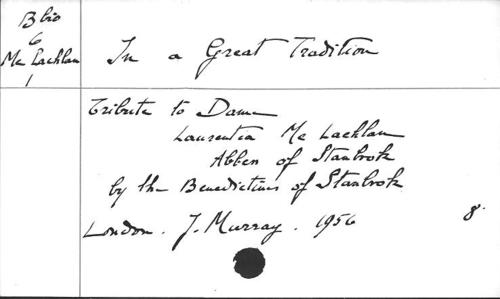 B bio
6
Mc Lachlan
1
In a Great Tradition
Tribute to Dame
Laurentia Mc Lachlan
Abbess of Stanbrook
by the Benedictines of Stanbrook
London. J. Murray. 1956
8.